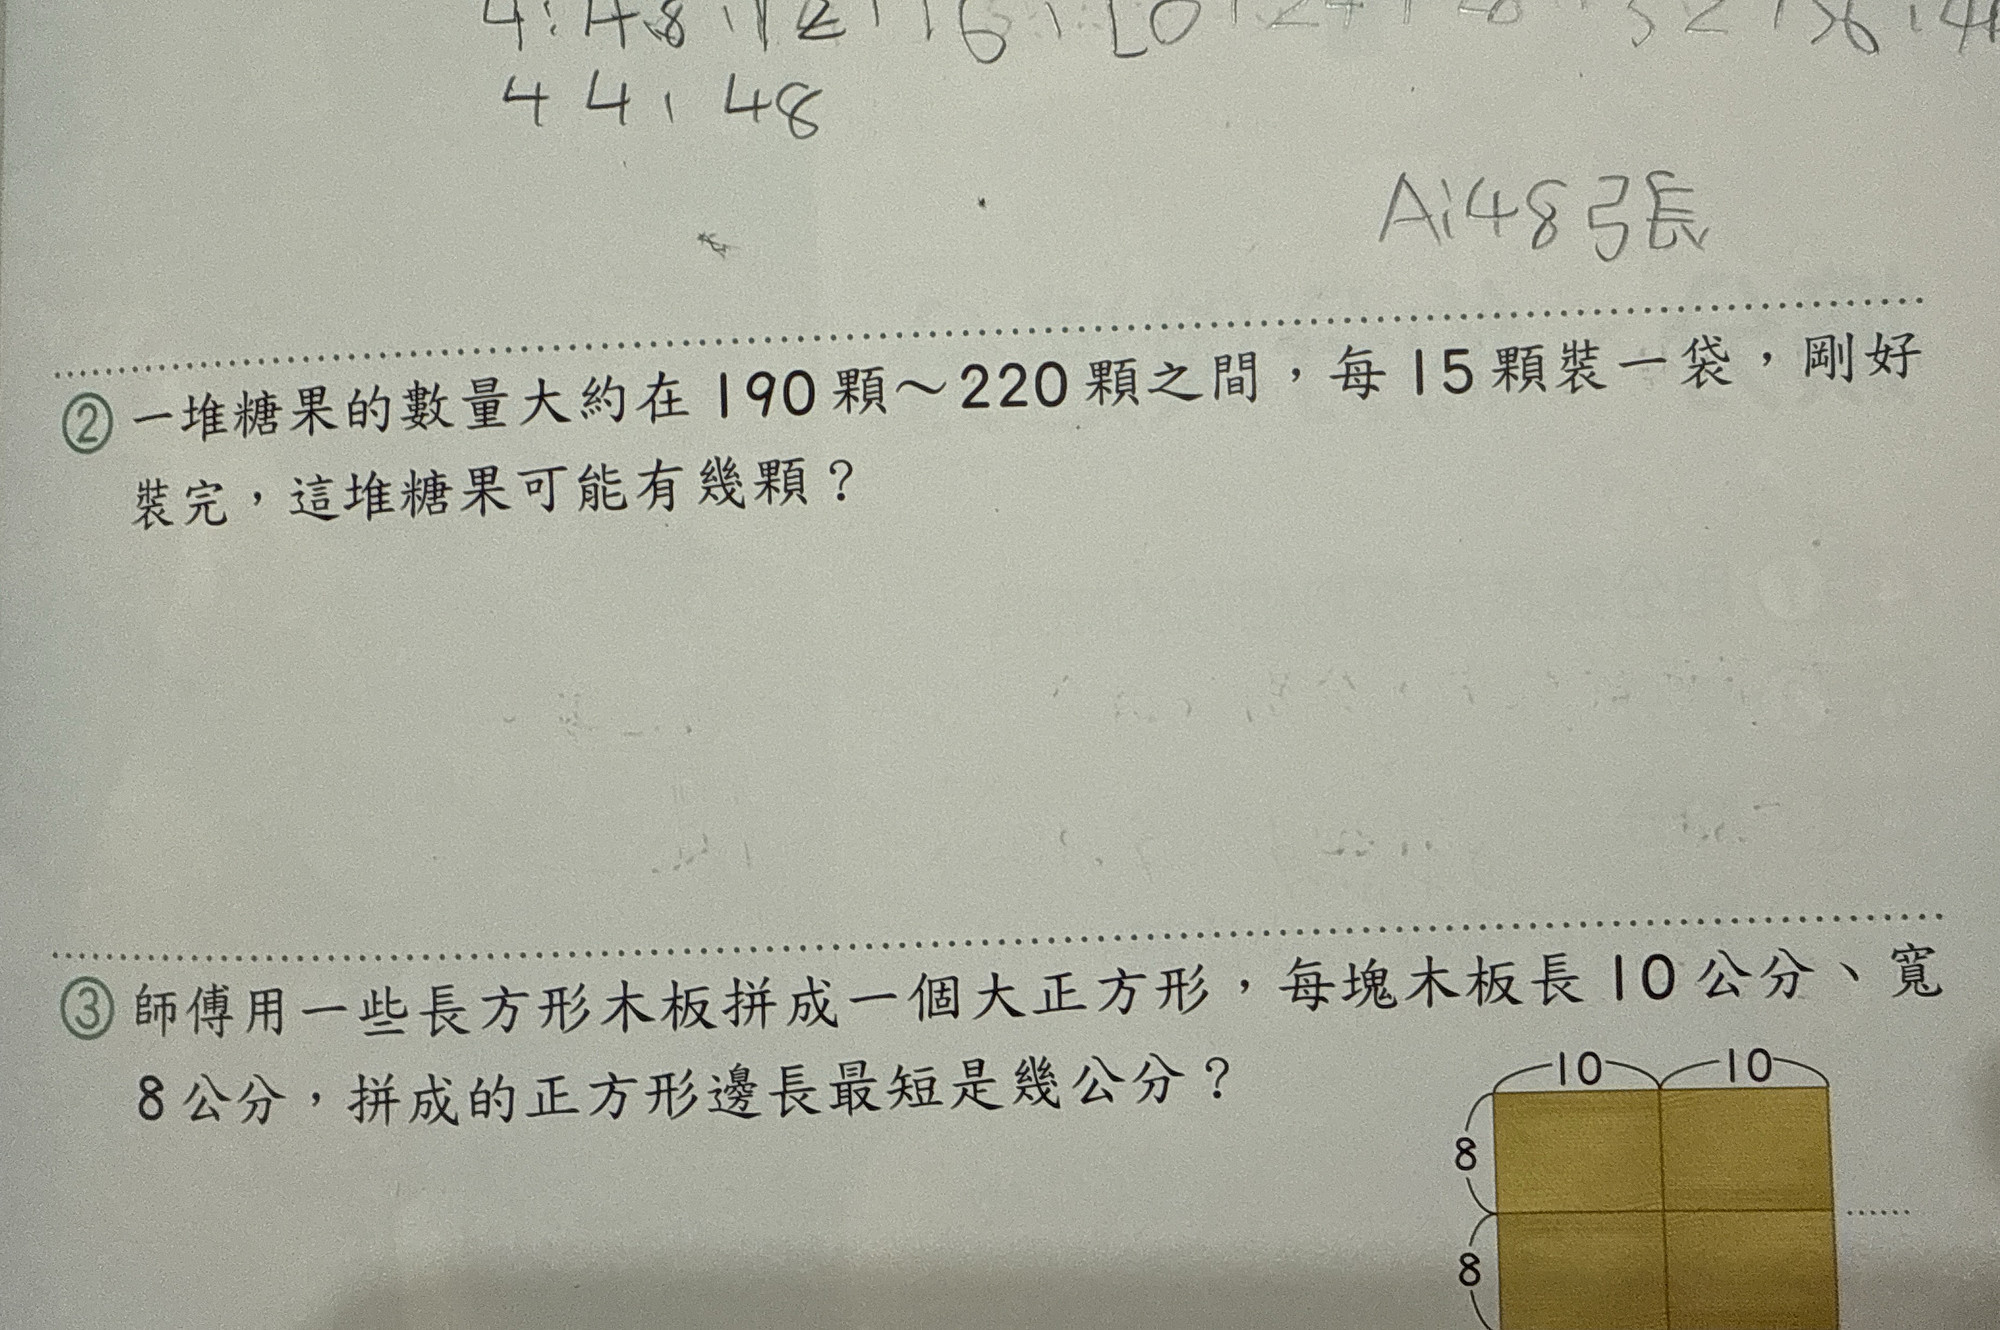 4
44、48
A:48張
② 一堆糖果的數量大約在190顆～220顆之間，每15顆裝一袋，剛好
裝完，這堆糖果可能有幾顆？
③ 師傅用一些長方形木板拼成一個大正方形，每塊木板長10公分、寬
8公分，拼成的正方形邊長最短是幾公分？
10 10
8
……
8